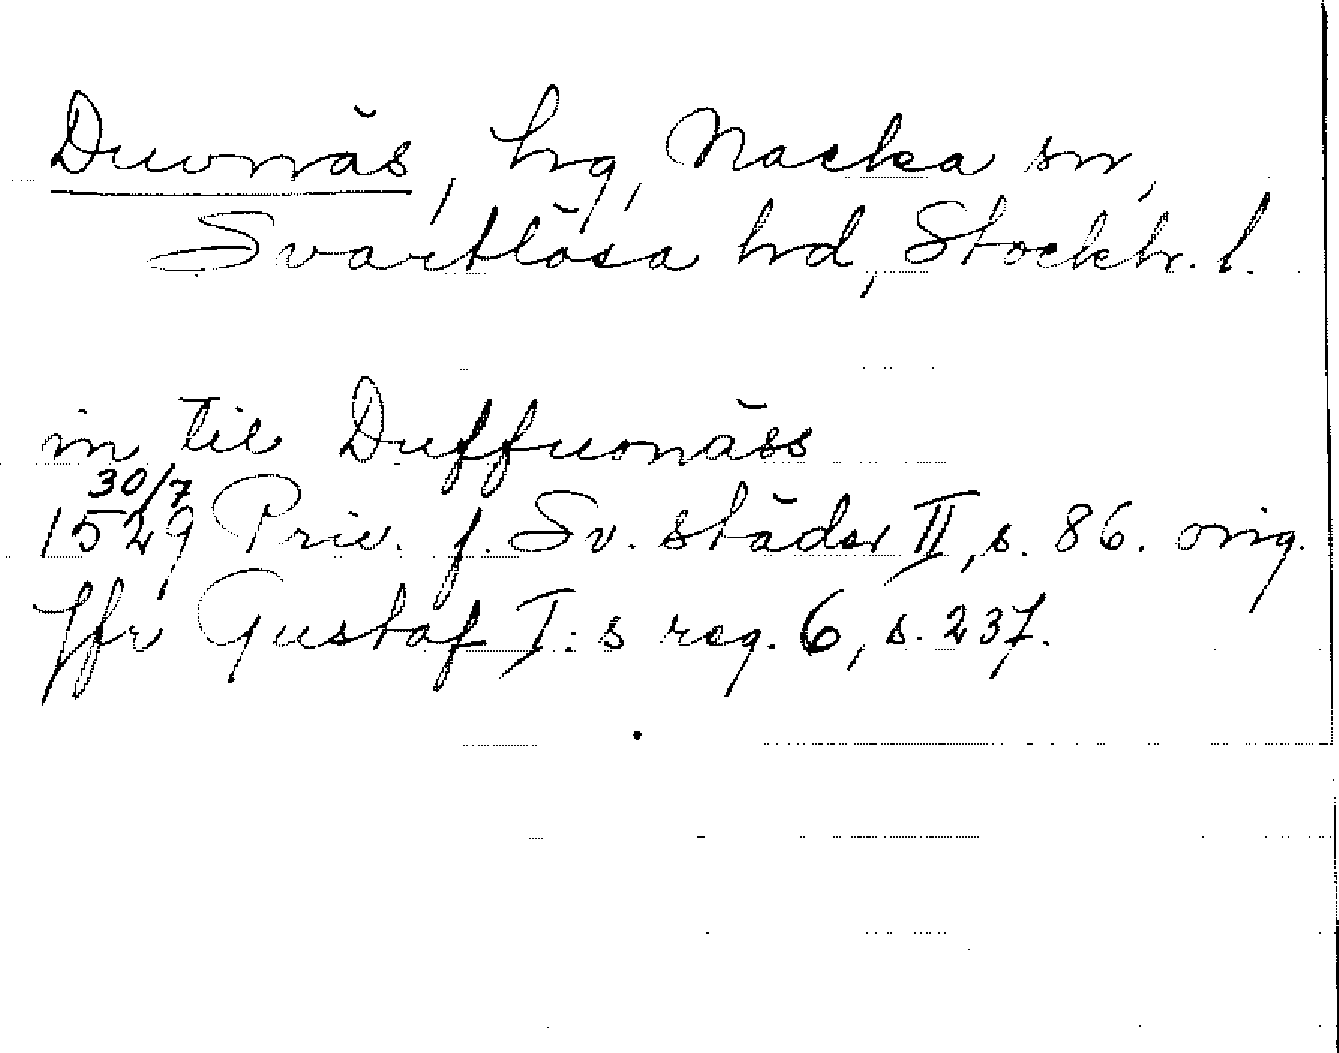 Duvnäs, hrg, Nacka sn,
Svartlösa hd, Stockh. l.
in til Duffuonäss
30/7
1529 Priv. f. Sv. städer II, s. 86. orig.
Jfr Gustaf I:s reg. 6, s. 237.